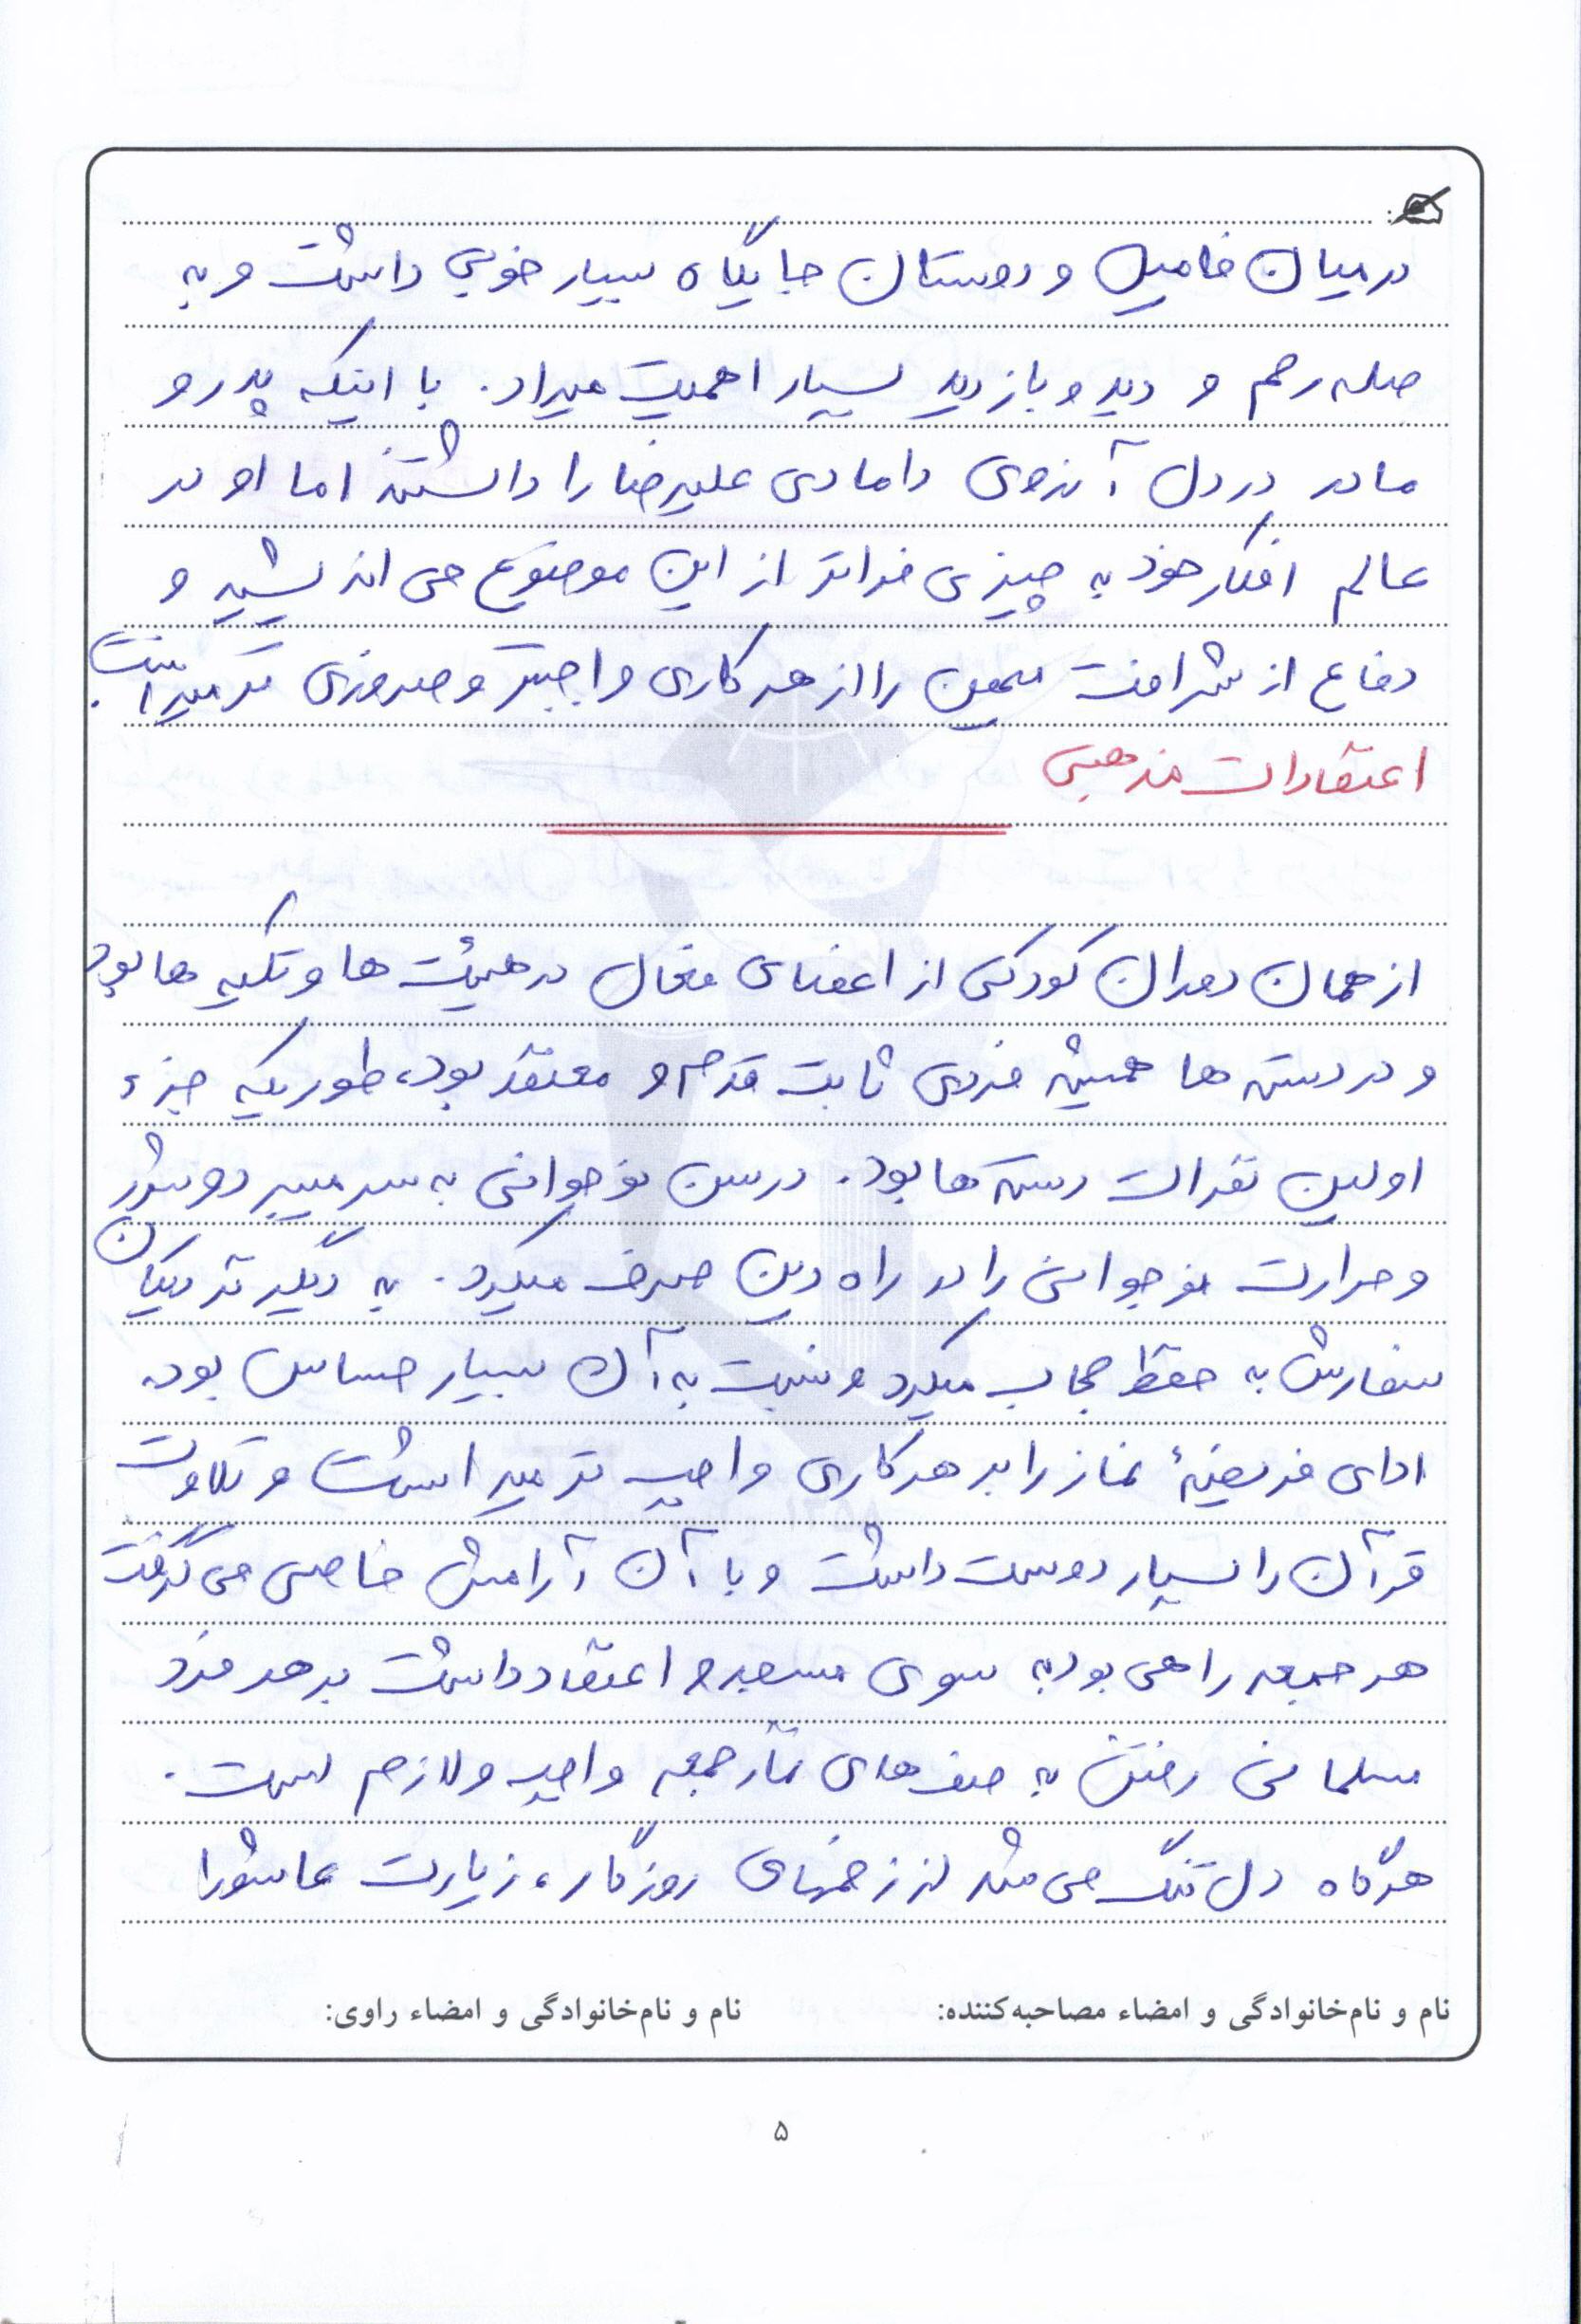 در میان فامیل و دوستان جایگاه بسیار خوبی داشت و به
صله رحم و دید و بازدید بسیار اهمیت میداد. با اینکه پدر و
مادر در دل آرزوی دامادی علیرضا را داشتند اما او در
عالم افکار خود به چیزی فراتر از این موضوع می اندیشید و
دفاع از شرافت میهن را از هر کاری واجبتر و ضروری تر میدانست.
اعتقادات مذهبی
از همان دوران کودکی از اعضای فعال در هیئت ها و تکیه ها بود
و در دسته ها همیشه فردی ثابت قدم و معتقد بود، طوریکه جزء
اولین نفرات دسته ها بود. در سن نوجوانی به سر میبرد و شور
و حرارت نوجوانی را در راه دین صرف میکرد. به دیگر نزدیکان
سفارش به حفظ حجاب میکرد و نسبت به آن بسیار حساس بود.
ادای فریضهٔ نماز را بر هر کاری واجب تر میداشت و تلاوت
قرآن را بسیار دوست داشت و با آن آرامش خاصی می گرفت
هر جمعه راهی بود به سوی مسجد و اعتقاد داشت بر هر فرد
مسلمانی رفتن به صف های نماز جمعه واجب و لازم است.
هرگاه دل تنگ می شد از زخمهای روزگار، زیارت عاشورا
نام و نام‌خانوادگی و امضاء مصاحبه‌کننده: نام و نام‌خانوادگی و امضاء راوی:
۵